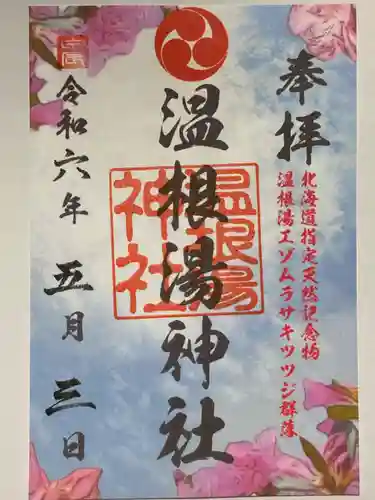 奉拝
北海道指定天然記念物
温根湯エゾムラサキツツジ群落
温根湯神社
温根湯神社
令和六年 五月 三日